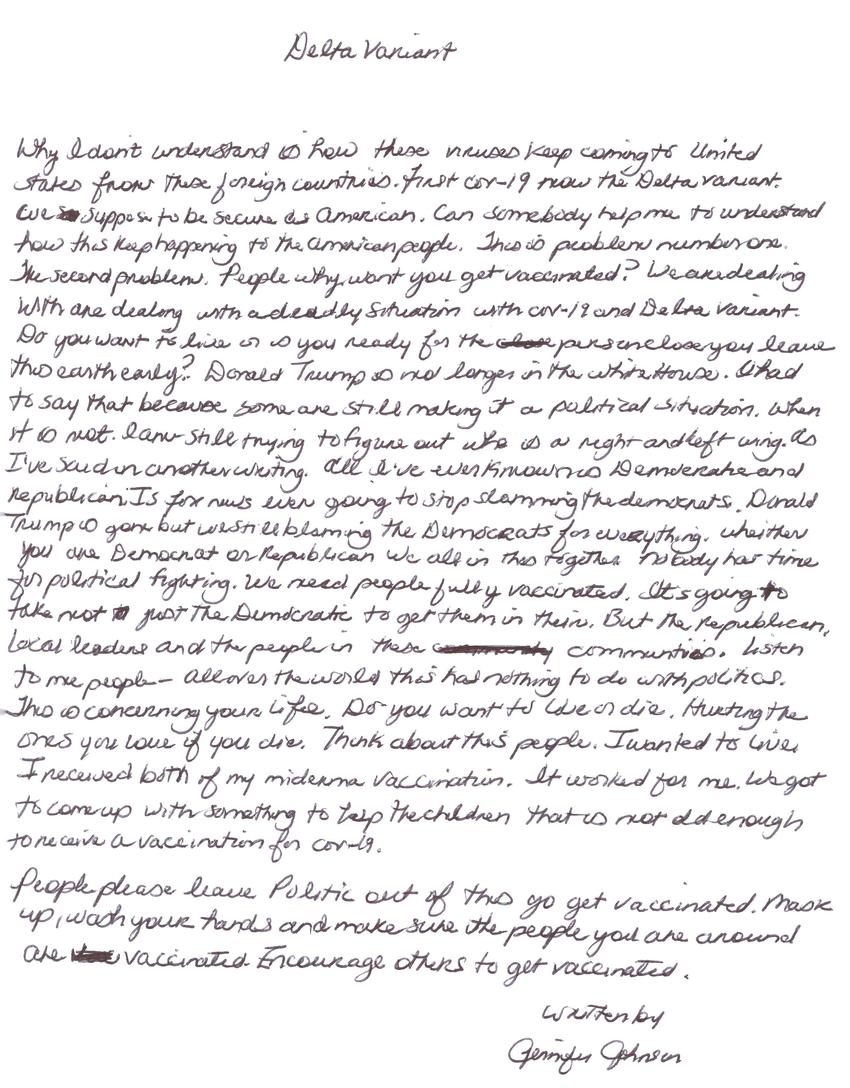 Delta Variant
Why I don't understand is how these viruses keep coming to United
states from these foreign countries. First cov-19 now the Delta variant.
we suppose to be secure as American. Can somebody help me to understand
how this keep happening to the American people. This is problem number one.
The second problem. People why want you get vaccinated? We are dealing
with are dealing with a deadly situation with cov-19 and Delta variant.
Do you want to live or is you ready for the person close you leave
this earth early? Donald Trump is no longer in the white House. I had
to say that because some are still making it a political situation. When
it is not. I am still trying to figure out who is a right and left wing. As
I've said in another writing. All I've ever known is Democratic and
republican. Is fox news ever going to stop slamming the democrats. Donald
Trump is gone but we still blaming the Democrats for everything. Wheither
you are Democrat or Republican we all in this together nobody has time
for political fighting. We need people fully vaccinated. It's going to
take not just the Democratic to get them in their. But the republican,
local leaders and the people in these communities. Listen
to me people - all over the world this has nothing to do with politics.
This is concerning your life. Do you want to live or die. Hurting the
ones you love if you die. Think about this people. I wanted to live.
I received both of my miderma vaccination. It worked for me. We got
to come up with something to help the children that is not old enough
to receive a vaccination for cov-19.
People please leave Politic out of this go get vaccinated. Mask
up, wash your hands and make sure the people you are around
are vaccinated Encourage others to get vaccinated.
written by
Jennifer Johnson